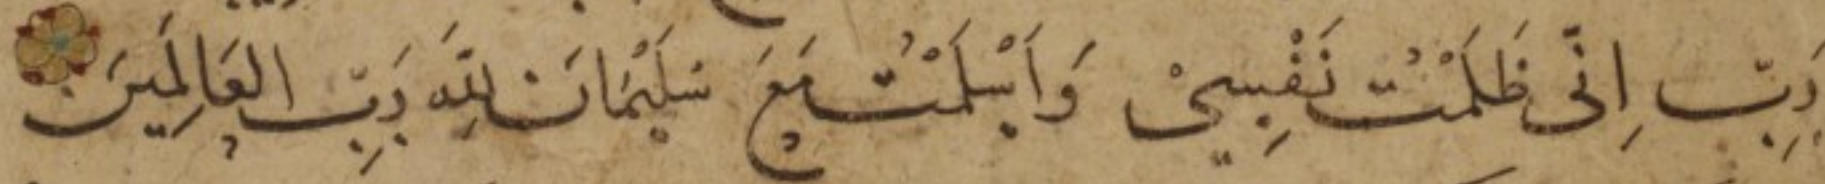 رَبِّ اِنّى ظَلَمْتُ نَفْسِىْ وَاَسْلَمْتُ مَعَ سُلَيْمَانَ لِلّٰهِ رَبِّ العَالَمِينَ